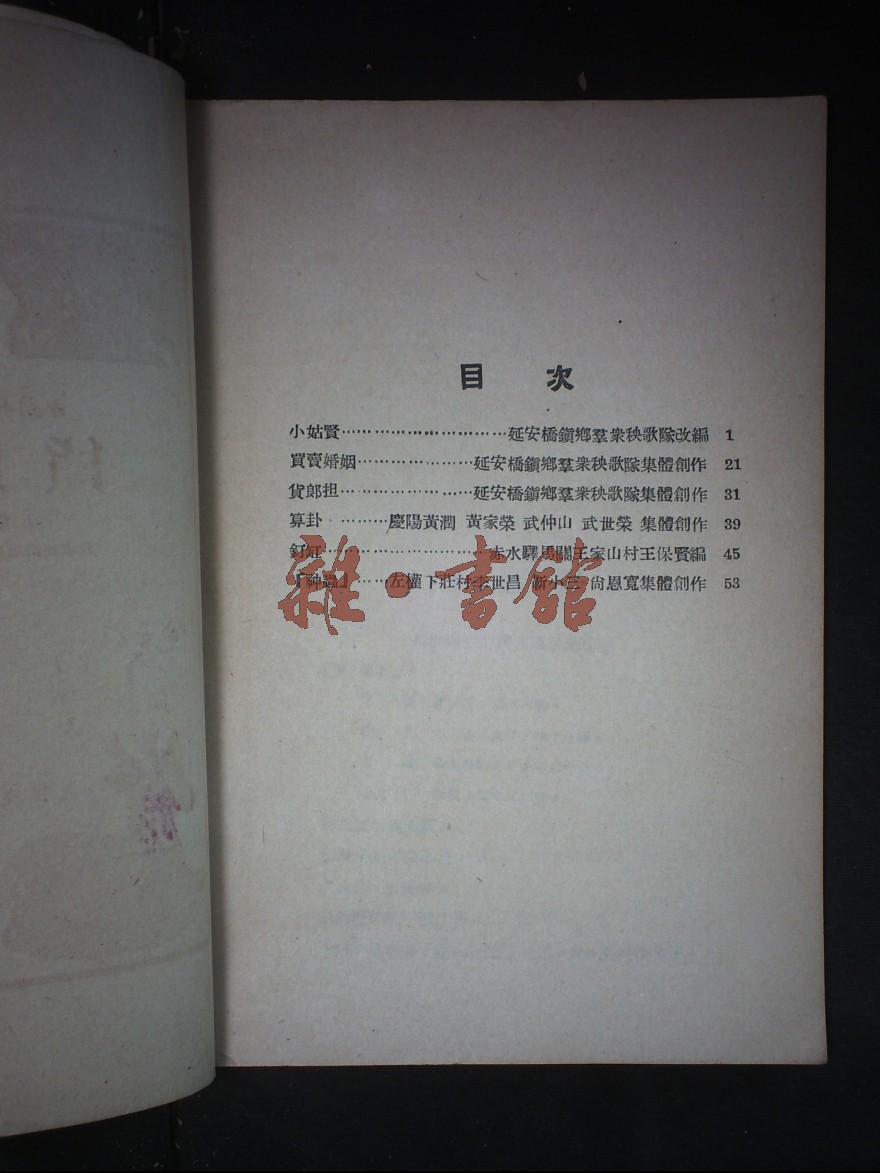 目 次
小姑賢……………………………延安橋鎮鄉羣衆秧歌隊改編 1
買賣婚姻…………………延安橋鎮鄉羣衆秧歌隊集體創作 21
貨郎担……………………延安橋鎮鄉羣衆秧歌隊集體創作 31
算卦 ………慶陽黃潤 黃家榮 武仲山 武世榮 集體創作 39
釘缸…………………………赤水驛馬關王家山村王保賢編 45
『神蟲』……左權下莊村李世昌 靳小三 尚恩寬集體創作 53
雜·書館